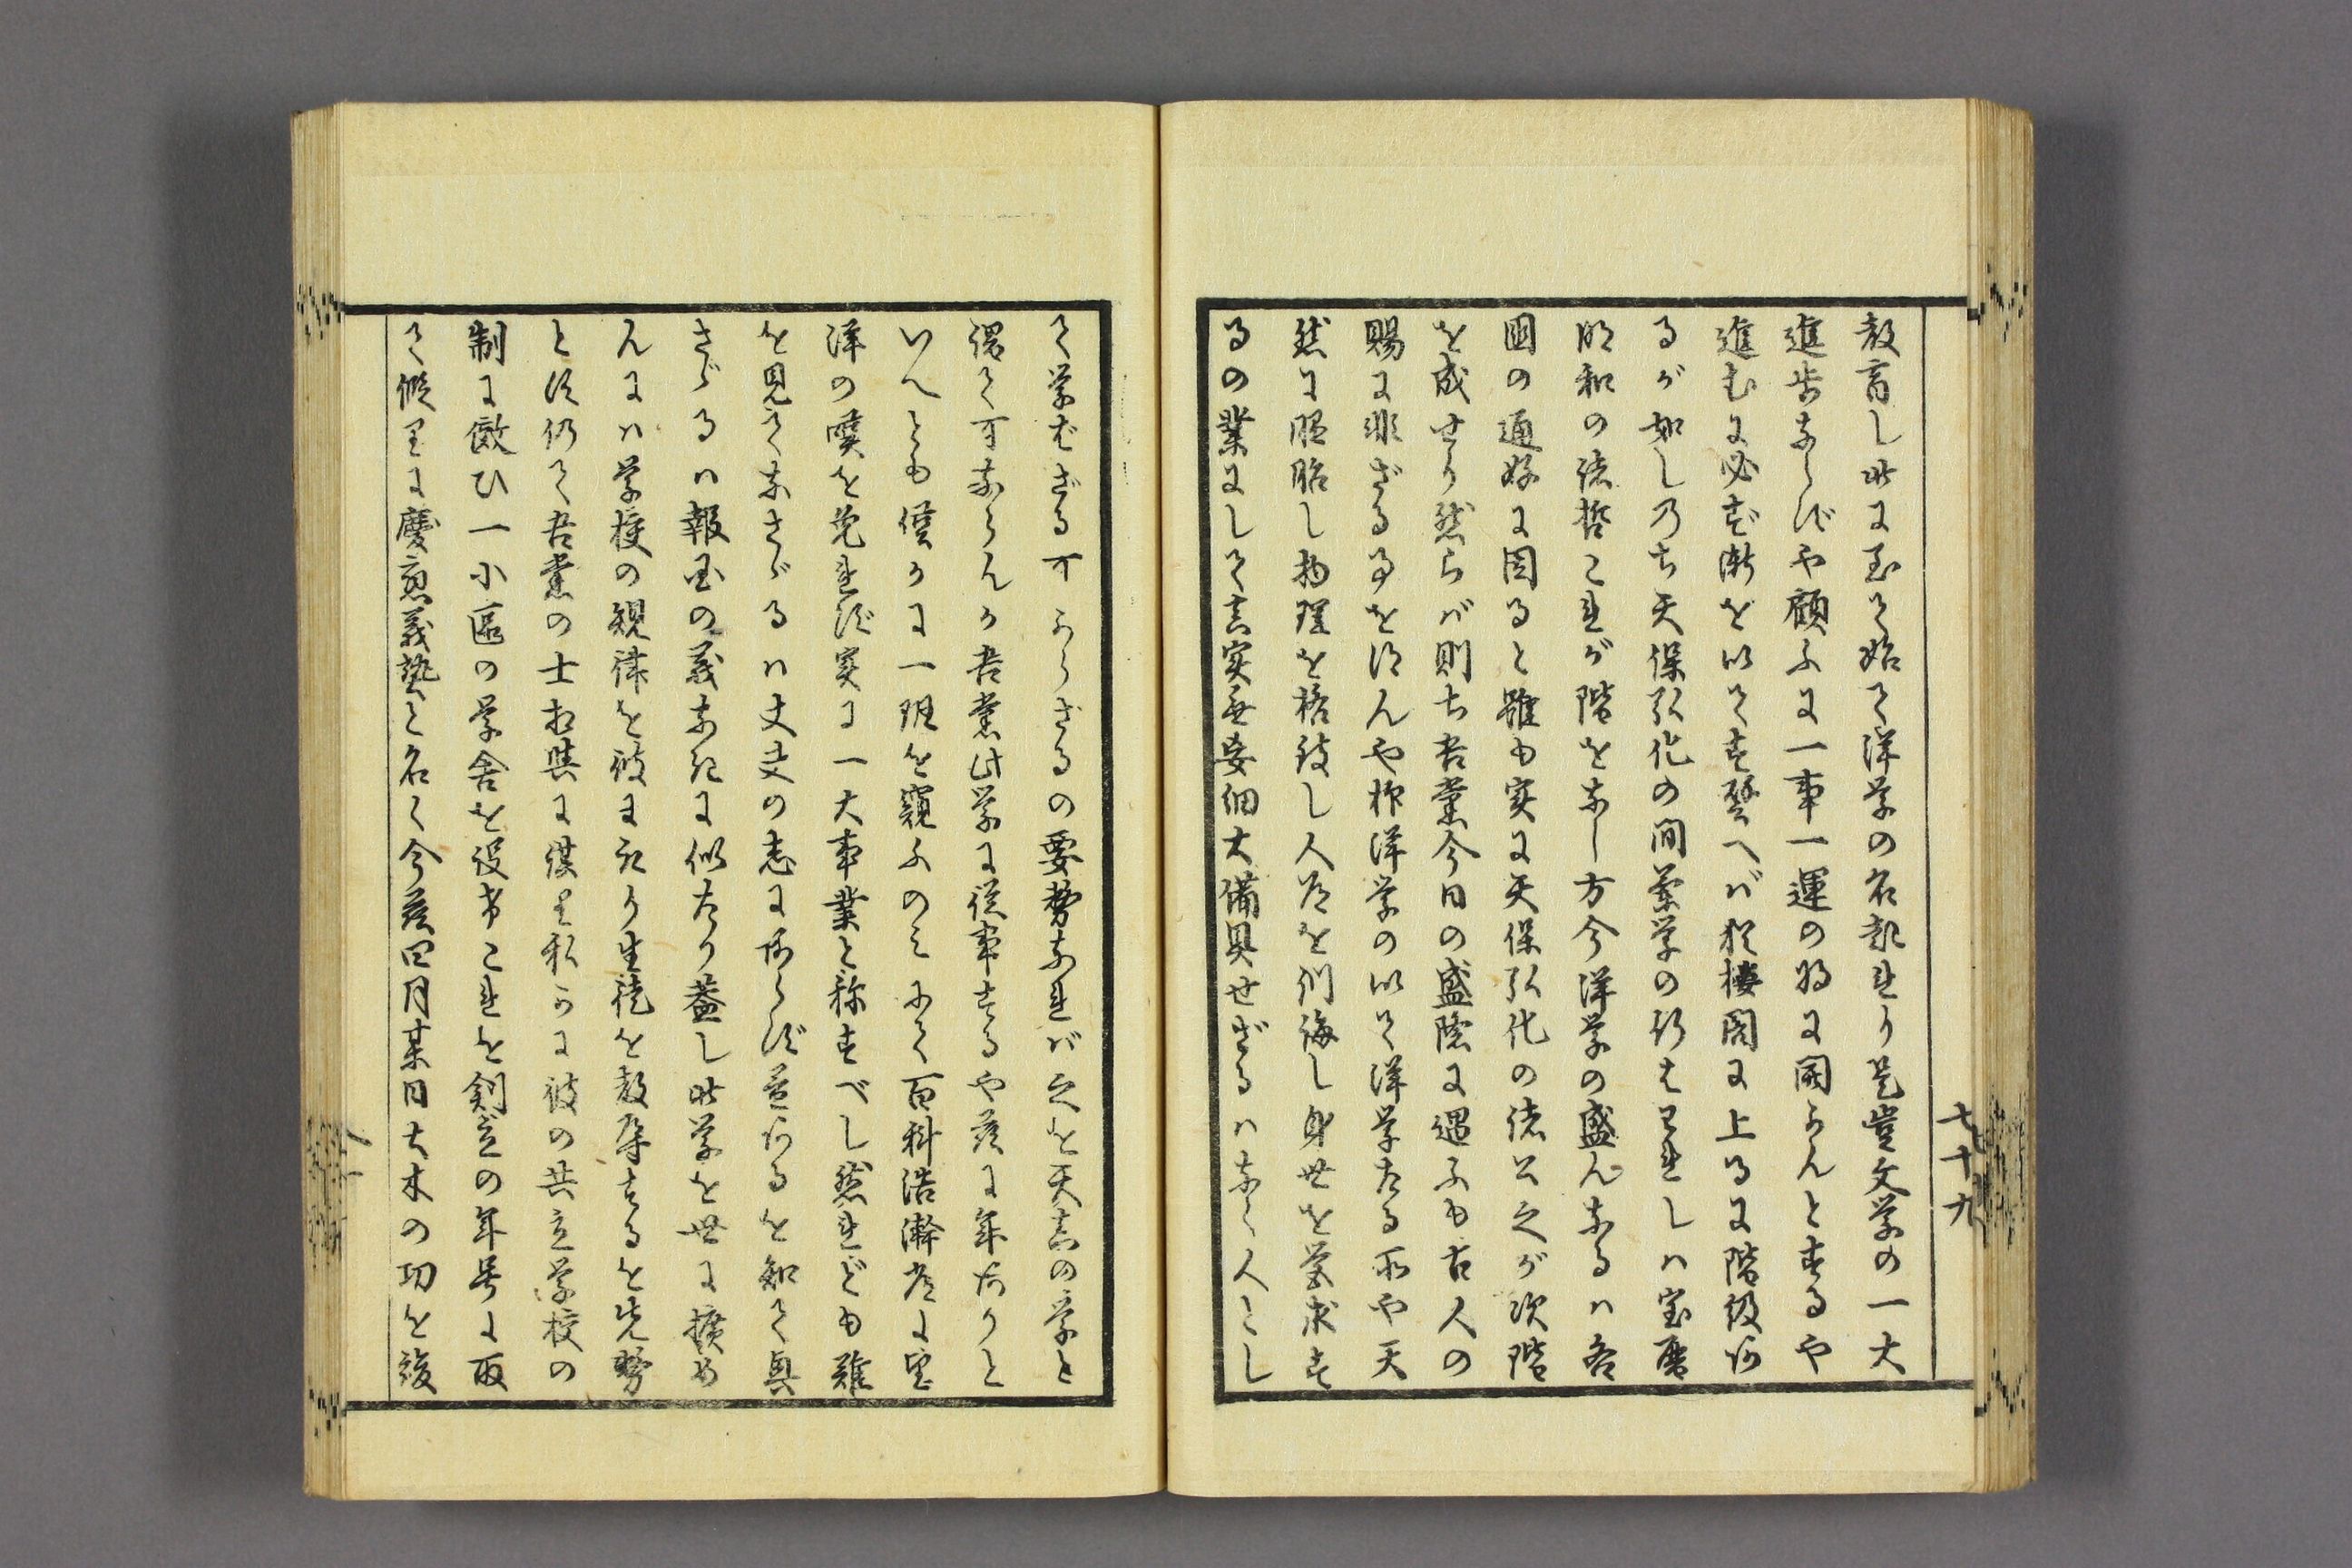 教育し此に至て始て洋学の名起れり是豈文学の一大
進歩ならずや顧ふに一事一運の将に開らんとするや
進むに必ず漸を以てす譬へば猶楼閣に上るに階級あ
るが如し乃ち天保弘化の間蘭学の行はれしハ宝暦
明和の諸哲これが階をなし方今洋学の盛んなるハ各
国の通好に因ると雖も実に天保弘化の諸公之が次階
を成せり然らバ則ち吾党今日の盛際に遇ふも古人の
賜に非ざるを得んや抑洋学の以て洋学たる所や天
然に胚胎し物理を格致し人道を訓誨し身世を営求す
るの業にして真実無妄細大備具せざるハなく人とし
て学ばざる可らざるの要務なれバ之を天真の学と
謂て可ならんか吾党此学に従事するや茲に年ありと
いへども僅かに一斑を窺ふのみにて百科浩澣常に望
洋の嘆を免れず実に一大事業と称すべし然れども難
を見てなさゞるハ丈夫の志にあらず益あるを知て興
さゞるハ報国の義なきに似たり蓋し此学を世に拡め
んにハ学校の規律を彼に取り生徒を教導するを先務
とす仍て吾党の士相与に謀て私かに彼の共立学校の
制に倣ひ一小区の学舎を設けこれを創立の年号に取
て仮りに慶應義塾と名く今茲四月某日土木の功を竣
七十九